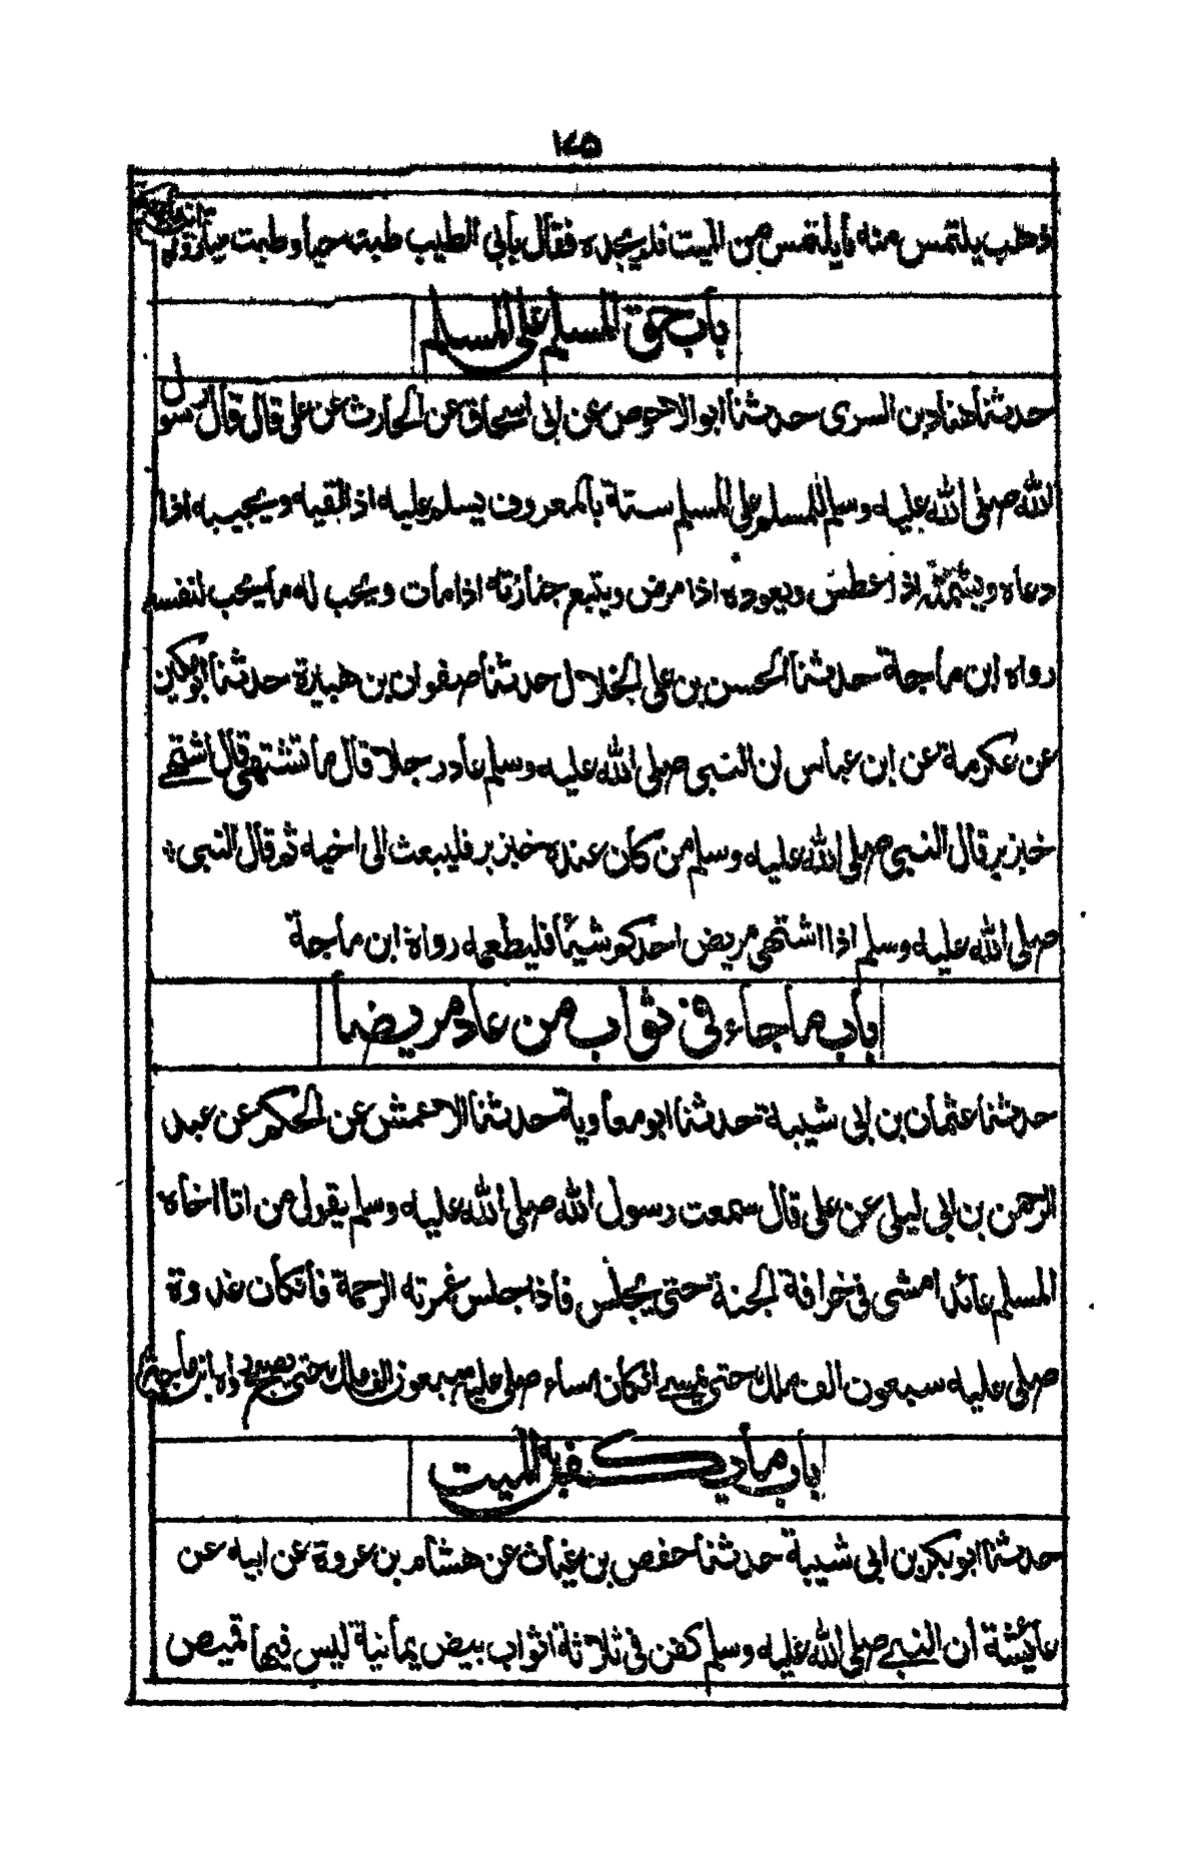 ۱۷۵
ذهب يلتمس منه ما يلتمس من الميت فلم يجده فقال بابي الطيب طبت حيا وطبت ميتا رواه ابن ماجة
باب حق المسلم على المسلم
حدثنا هناد بن السرى حدثنا ابو الاحوص عن ابى اسحاق عن الحارث عن على قال قال رسول
الله صلى الله عليه وسلم للمسلم على المسلم ستة بالمعروف يسلم عليه اذا لقيه ويجيبه اذا
دعاه ويشمته اذا عطس ويعوده اذا مرض ويتبع جنازته اذا مات ويحب له ما يحب لنفسه
رواه ابن ماجة حدثنا الحسن بن على الخلال حدثنا صفوان بن هبيرة حدثنا ابو مكين
عن عكرمة عن ابن عباس ان النبى صلى الله عليه وسلم عاد رجلا قال ما تشتهى قال اشتهى
خبز بر قال النبى صلى الله عليه وسلم من كان عنده خبز بر فليبعث الى اخيه ثم قال النبى
صلى الله عليه وسلم اذا اشتهى مريض احدكم شيئا فليطعمه رواه ابن ماجة
باب ما جاء فى ثواب من عاد مريضا
حدثنا عثمان بن ابى شيبة حدثنا ابو معاوية حدثنا الاعمش عن الحكم عن عبد
الرحمن بن ابى ليلى عن على قال سمعت رسول الله صلى الله عليه وسلم يقول من اتا اخاه
المسلم عائدا مشى فى خرافة الجنة حتى يجلس فاذا جلس غمرته الرحمة فان كان غدوة
صلى عليه سبعون الف ملك حتى يمسى ان كان مساء صلى عليه سبعون الف ملك حتى يصبح رواه ابن ماجة
باب ما يكفن به الميت
حدثنا ابو بكر بن ابى شيبة حدثنا حفص بن غياث عن هشام بن عروة عن ابيه عن
عائشة ان النبى صلى الله عليه وسلم كفن فى ثلاثة اثواب بيض يمانية ليس فيها قميص